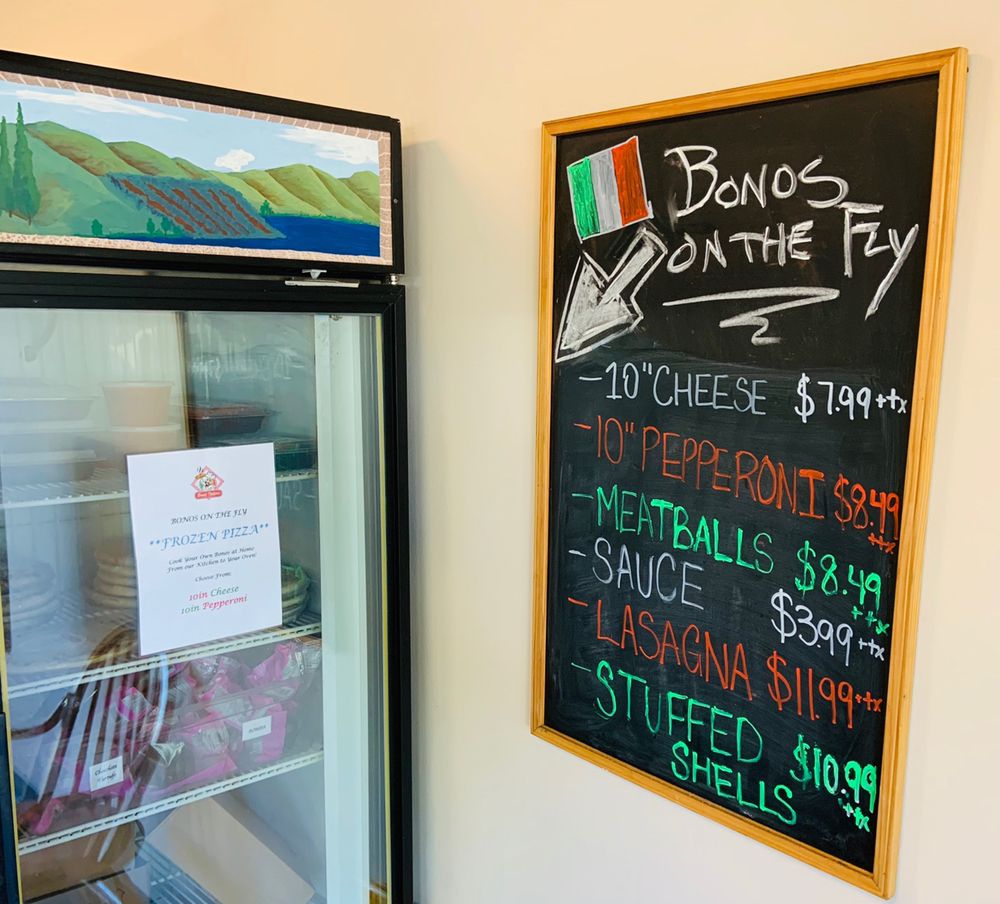 BONOS
ON THE FLY
- 10" CHEESE $7.99 ++x
- 10" PEPPERONI $8.49 ++x
- MEATBALLS $8.49 ++x
- SAUCE $3.99 ++x
- LASAGNA $11.99 ++x
- STUFFED
SHELLS $10.99 ++x
BONOS ON THE FLY
**FROZEN PIZZA**
Cook Your Own Bonos at Home
From our Kitchen to Your Oven!
Choose From:
10in Cheese
10in Pepperoni
Chocolate